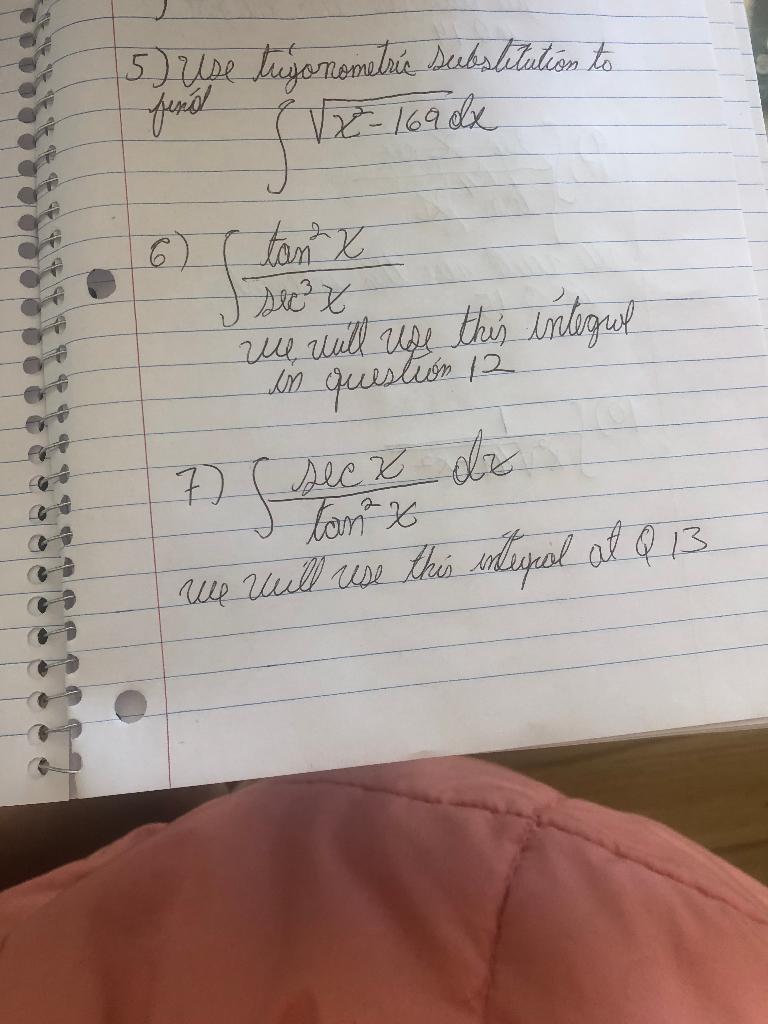 5) Use trigonometric substitution to
find
∫ √x² - 169 dx
6) ∫ tan² x / sec³ x
we will use this integral
in question 12
7) ∫ sec x / tan² x dx
we will use this integral at Q 13